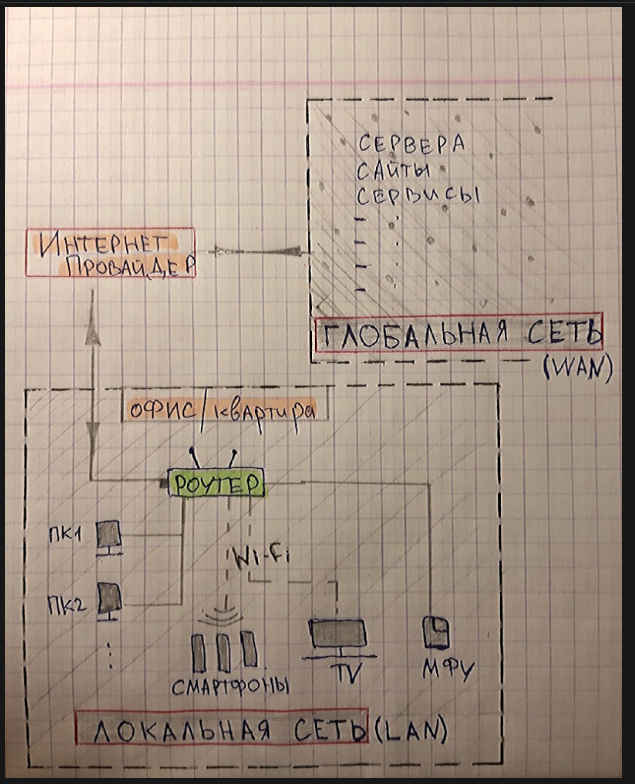 СЕРВЕРА
САЙТЫ
СЕРВИСЫ
ИНТЕРНЕТ
ПРОВАЙДЕР
ГЛОБАЛЬНАЯ СЕТЬ
(WAN)
ОФИС/квартира
РОУТЕР
ПК1
Wi-Fi
ПК2
СМАРТФОНЫ
TV
МФУ
ЛОКАЛЬНАЯ СЕТЬ (LAN)